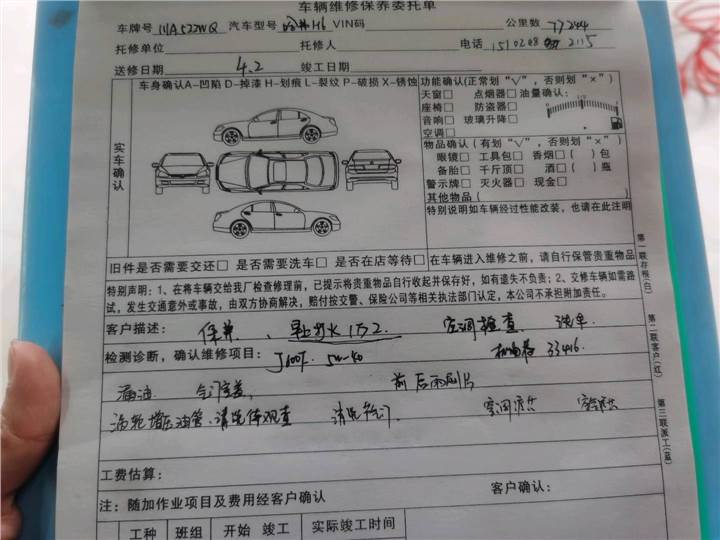 车辆维修保养委托单
车牌号 川A522WQ 汽车型号 哈弗H6 VIN码 公里数 77244
托修单位 托修人 电话
送修日期 4.2 竣工日期
实车确认
车身确认A-凹陷 D-掉漆 H-划痕 L-裂纹 P-破损 X-锈蚀
功能确认(正常划"√",否则划"×")
天窗□ 点烟器□ 油量确认:
座椅□ 防盗器□
音响□ 玻璃升降□
空调□
物品确认(有划"√",否则划"×")
眼镜□ 工具包□ 香烟□( )包
备胎□ 千斤顶□ 酒□( )瓶
警示牌□ 灭火器□ 现金□
其他物品( )
特别说明如车辆经过性能改装,也请在此注明
旧件是否需要交还□ 是否需要洗车□ 是否在店等待□ 在车辆进入维修之前,请自行保管贵重物品
特别声明:1、在将车辆交给我厂检查修理前,已提示将贵重物品自行收起并保存好,如有遗失不负责;2、交修车辆如需路
试,发生交通意外或事故,由双方协商解决,赔付按交警、保险公司等相关执法部门认定,本公司不承担附加责任。
客户描述: 保养、 空调检查 洗车
检测诊断,确认维修项目: 5w-40 机油卷 33416
漏油 前后雨刮片
涡轮增压油管、清洗 清洗节气门
工费估算:
注:随加作业项目及费用经客户确认 客户确认:
工种 班组 开始 竣工 实际竣工时间
第一联存根(白)
第二联客户(红)
第三联派工(蓝)